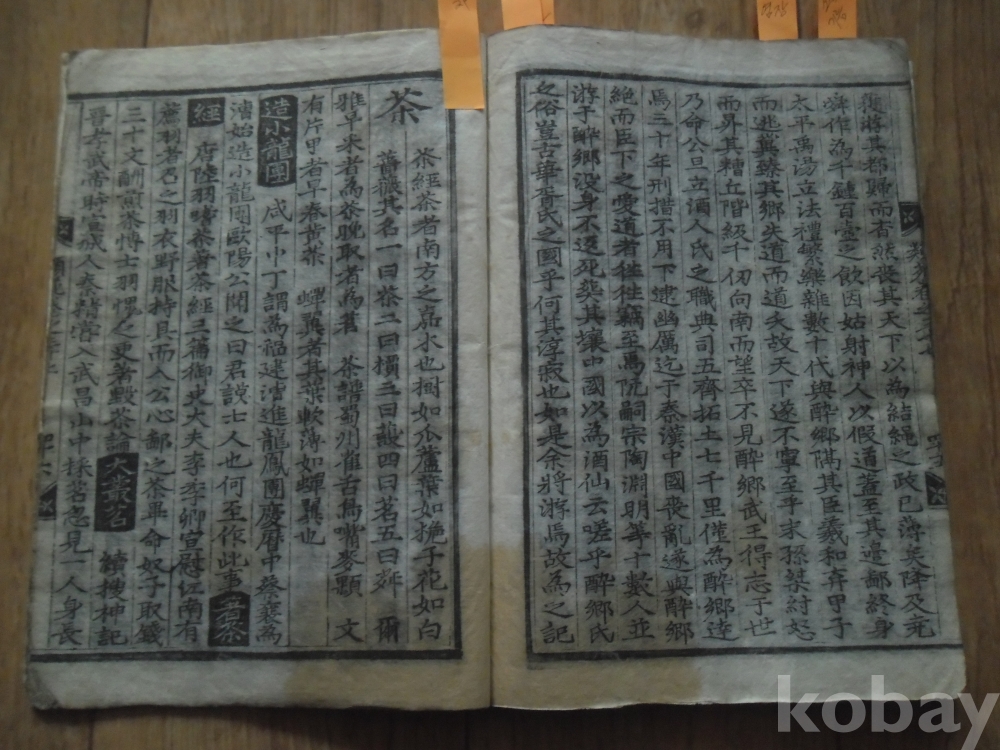 復游其都歸而杳然喪其天下以為結繩之政已薄矣降及堯
舜作為千鍾百壺之飮因姑射神人以假道蓋至其邊鄙終身
太平禹湯立法禮繁樂雜數十代與醉鄉隔其臣羲和弃甲子
而逃冀臻其鄉失道而道夭故天下遂不寧至乎末孫桀紂怒
而昇其糟丘階級千仞向南而望卒不見醉鄉武王得志于世
乃命公旦立酒人氏之職典司五齊拓土七千里僅為醉鄉達
焉三十年刑措不用下逮幽厲迄于秦漢中國喪亂遂與醉鄉
絶而臣下之受道者往往竊至焉阮嗣宗陶淵明等十數人並
游于醉鄉沒身不返死葬其壤中國以為酒仙云嗟乎醉鄉氏
之俗豈古華胥氏之國乎何其淳寂也如是余將游焉故為之記
茶
茶經茶者南方之嘉木也樹如瓜蘆葉如梔子花如白
薔薇其名一曰茶二曰檟三曰蔎四曰茗五曰荈 爾
雅早采者為茶晚取者為茗 茶譜蜀州雀舌鳥嘴麥顆 文
有片甲者早春黃茶 蟬翼者其葉軟薄如蟬翼也
造小龍團 咸平中丁謂為福建漕進龍鳳團慶曆中蔡襄為
漕始造小龍團歐陽公聞之曰君謨士人也何至作此事 著茶
經 唐陸羽嗜茶著茶經三篇御史大夫李季卿宣慰江南有
薦羽者召之羽衣野服持具而入公心鄙之茶畢命奴子取錢
三十文酬煎茶博士羽愧之更著毀茶論 大叢茗 續搜神記
晉孝武帝時宣城人秦精嘗入武昌山中採茗忽見一人身長
kobay